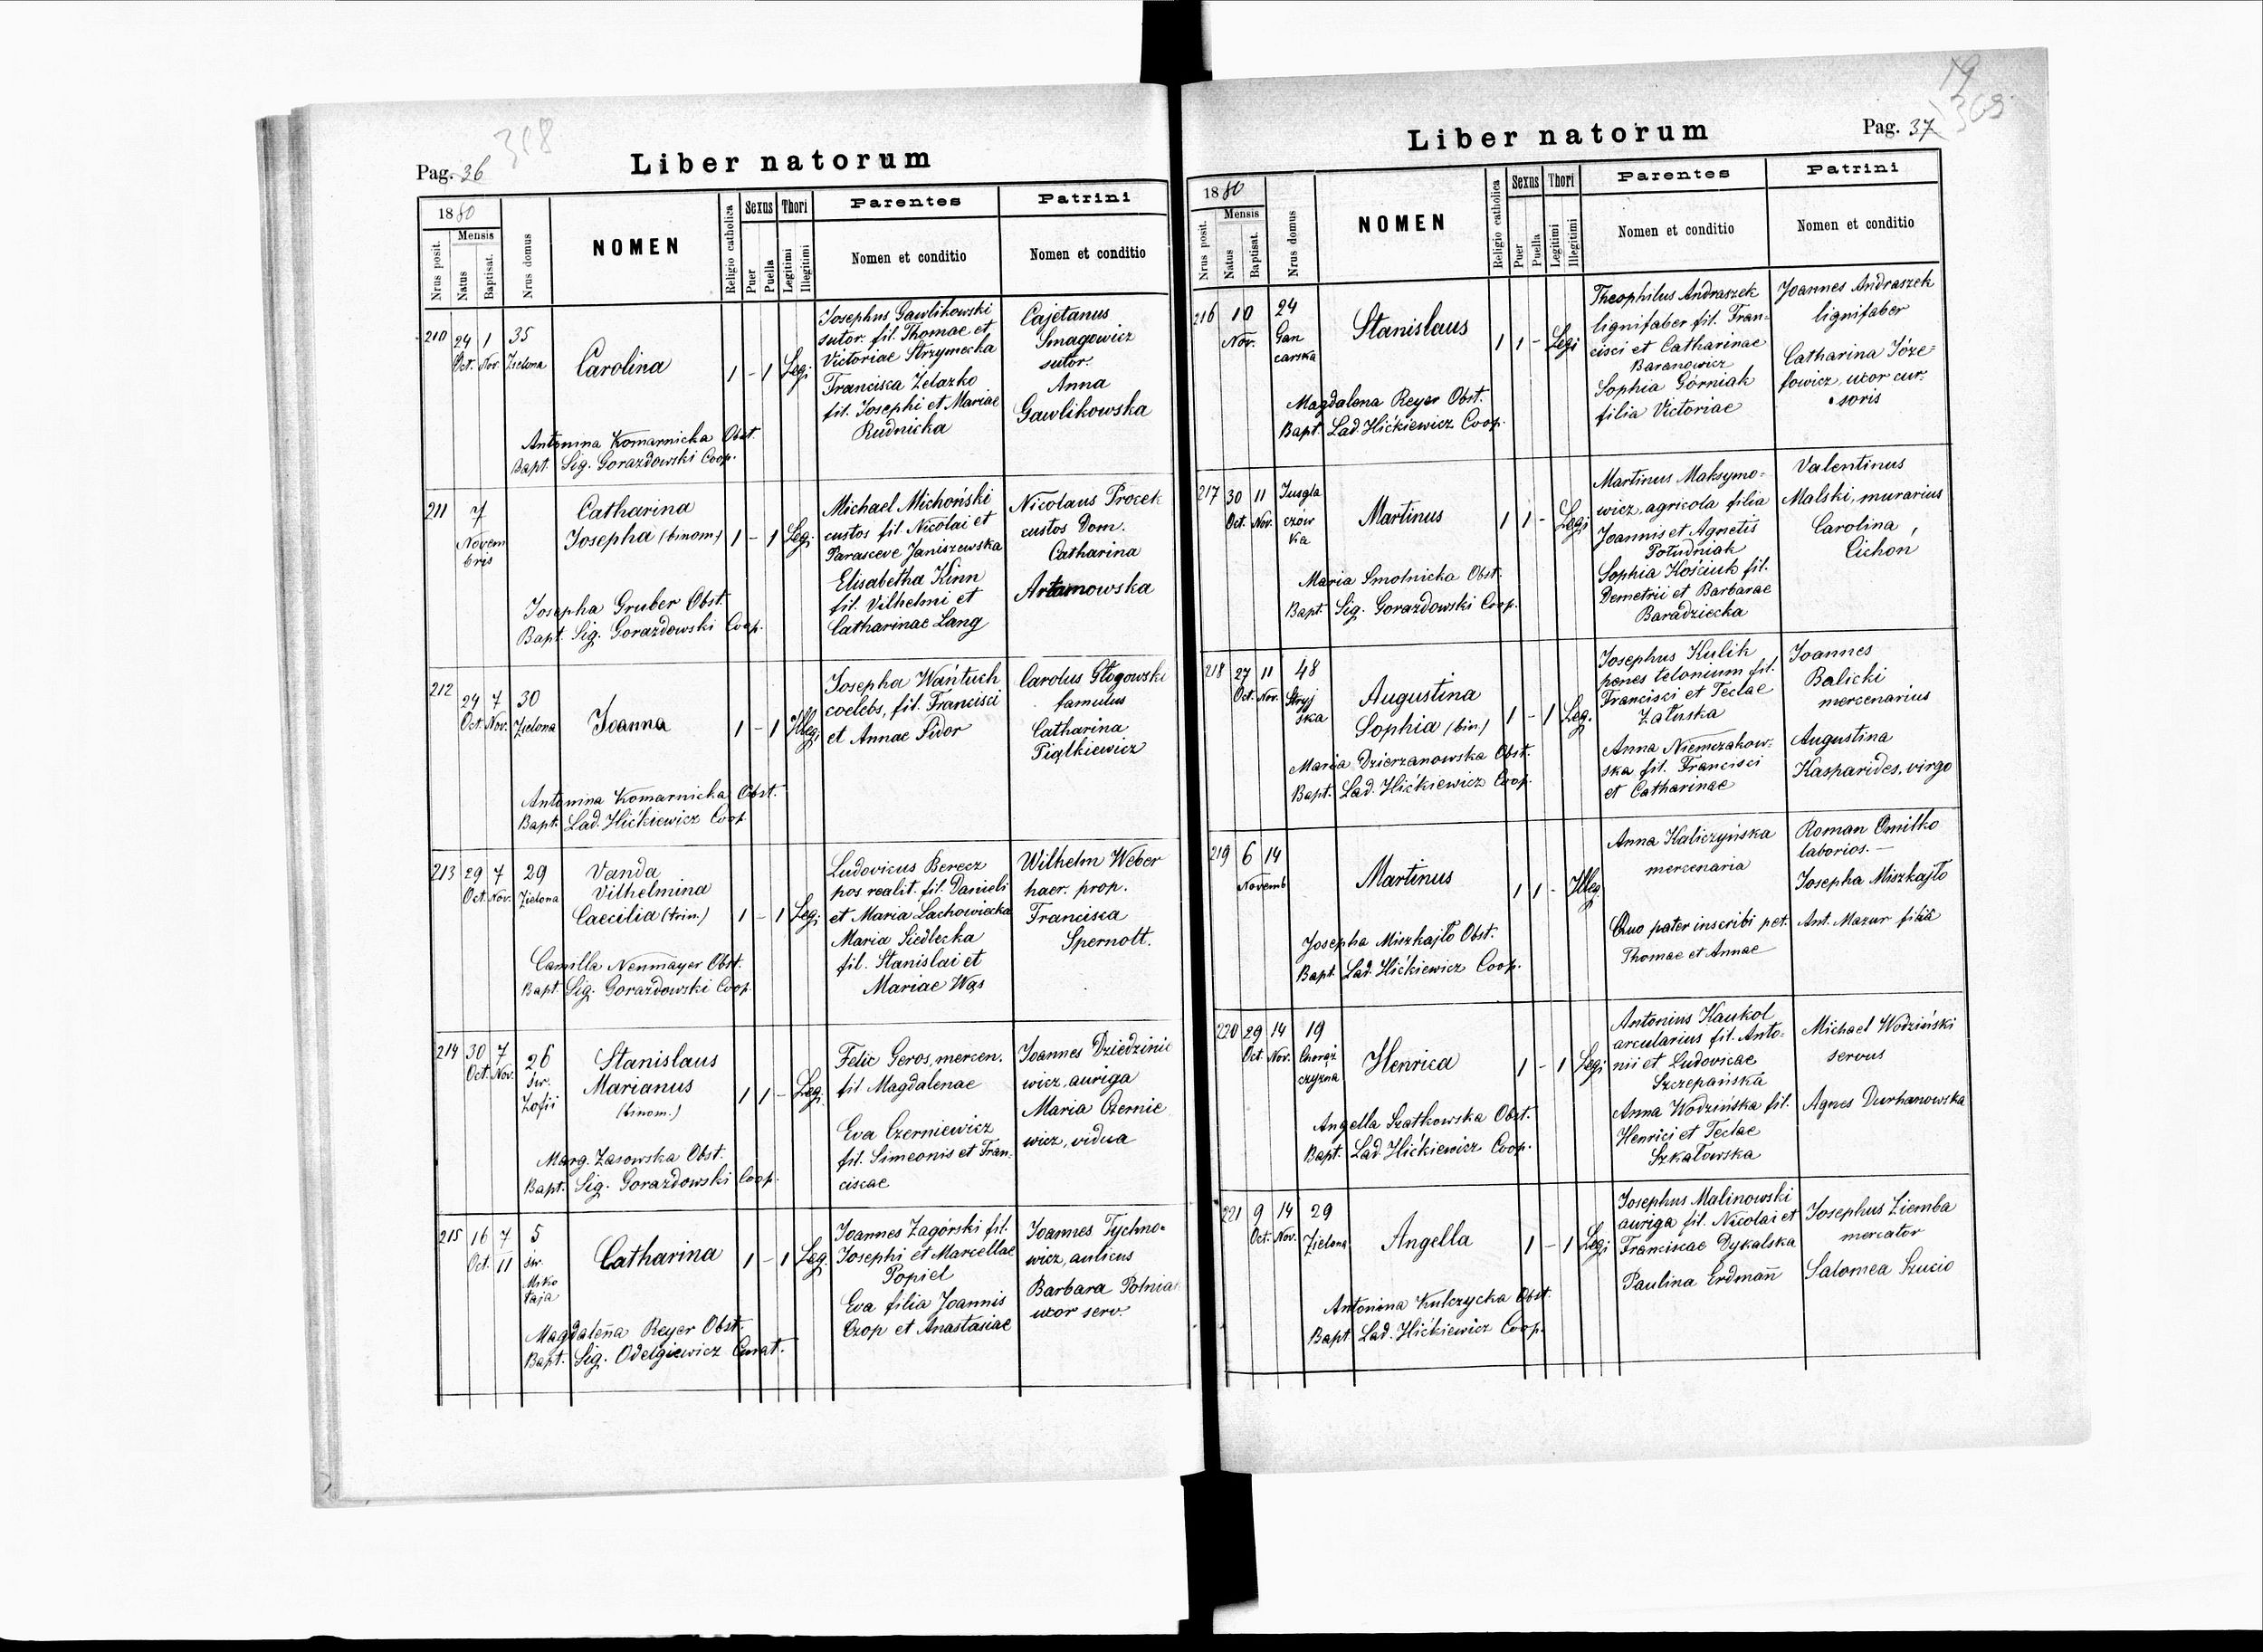 318
Pag. 36
Liber natorum
1880
Mensis
Nrus posit.
Natus
Baptisat.
Nrus domus
NOMEN
Religio catholica
Sexus
Puer
Puella
Thori
Legitimi
Illegitimi
Parentes
Nomen et conditio
Patrini
Nomen et conditio
210
24 Oct.
1 Nov.
35
Zielona
Carolina
1 - 1 Legi.
Josephus Gawlikowski
sutor. fil. Thomae et
Victoriae Strzymecka
Francisca Zelazko
fil. Josephi et Mariae
Rudnicka
Cajetanus
Smagowicz
sutor.
Anna
Gawlikowska
Antonina Komarnicka Obst.
Bapt. Sig. Gorazdowski Coop.
211
7
Novem
bris
Catharina
Josepha (binom.)
1 - 1 Legi.
Michael Michoński
custos fil. Nicolai et
Parasceve Janiszewska
Elisabetha Kinn
fil. Vilhelmi et
Catharinae Lang
Nicolaus Procek
custos Dom.
Catharina
Artamowska
Josepha Gruber Obst.
Bapt. Sig. Gorazdowski Coop.
212
24 Oct.
7 Nov.
30
Zielona
Joanna
1 - 1 Illegi.
Josepha Wańtuch
coelebs, fil. Francisci
et Annae Sidor
Carolus Głogowski
famulus
Catharina
Piątkiewicz
Antonina Komarnicka Obst.
Bapt. Lad. Hićkiewicz Coop.
213
29 Oct.
7 Nov.
29
Zielona
Vanda
Vilhelmina
Caecilia (trin.)
1 - 1 Legi.
Ludovicus Berecz
pos. realit. fil. Danieli
et Maria Lachowiecka
Maria Siedlecka
fil. Stanislai et
Mariae Wąs
Wilhelm Weber
haer. prop.
Francisca
Spernott.
Camilla Neumayer Obst.
Bapt. Sig. Gorazdowski Coop.
214
30 Oct.
7 Nov.
26
Sw.
Zofii
Stanislaus
Marianus
(binom.)
1 1 - Legi.
Felic Geros, mercen.
fil Magdalenae
Eva Czerniewicz
fil. Simeonis et Fran-
ciscae
Joannes Dziedzinie
wicz, auriga
Maria Czernie
wicz, vidua
Marg. Zasowska Obst.
Bapt. Sig. Gorazdowski Coop.
215
16 Oct.
7 11
5
św.
Miko
łaja
Catharina
1 - 1 Leg.
Joannes Zagórski fil.
Josephi et Marcellae
Popiel
Eva filia Joannis
Czop et Anastasiae
Joannes Tychno-
wicz, aulicus
Barbara Polnia
uxor serv.
Magdalena Reyer Obst.
Bapt. Sig. Odelgiewicz Curat.
Liber natorum
Pag. 37
1880
Mensis
Nrus posit.
Natus
Baptisat.
Nrus domus
NOMEN
Religio catholica
Sexus
Puer
Puella
Thori
Legitimi
Illegitimi
Parentes
Nomen et conditio
Patrini
Nomen et conditio
216
10
Nov.
24
Gan
carska
Stanislaus
1 1 - Legi
Theophilus Andraszek
lignifaber fil. Fran-
cisci et Catharinae
Baranowicz
Sophia Górniak
filia Victoriae
Joannes Andraszek
lignifaber
Catharina Józe-
fowicz, uxor cur-
soris
Magdalena Reyer Obst.
Bapt. Lad. Hićkiewicz Coop.
217
30 Oct.
11 Nov.
Jusgla
czów
ka
Martinus
1 1 - Legi
Martinus Maksymo-
wicz, agricola filia
Joannis et Agnetis
Południak
Sophia Kościuk fil.
Demetrii et Barbarae
Baradziecka
Valentinus
Malski, murarius
Carolina
Cichoń
Maria Smolnicka Obst.
Bapt. Sig. Gorazdowski Coop.
218
27 Oct.
11 Nov.
48
Stryj
ska
Augustina
Sophia (bin.)
1 - 1 Leg.
Josephus Kulik
penes telonium fil.
Francisci et Teclae
Załuska
Anna Niemczakow-
ska fil. Francisci
et Catharinae
Joannes
Balicki
mercenarius
Augustina
Kasparides, virgo
Maria Dzierzanowska Obst.
Bapt. Lad. Hićkiewicz Coop.
219
6 14
Novemb
Martinus
1 1 - Illeg.
Anna Kaliczyńska
mercenaria
Quo pater inscribi pet.
Thomae et Annae
Roman Omilko
laborios. —
Josepha Miszkajło
Ant. Mazur filia
Josepha Miszkajło Obst.
Bapt. Lad. Hićkiewicz Coop.
220
29 Oct.
14 Nov.
19
Chorąż
czyzna
Henrica
1 - 1 Legi
Antonius Kaukol
arcularius fil. Anto-
nii et Ludovicae
Szczepańska
Anna Wodzińska fil.
Henrici et Teclae
Szkatowska
Michael Wodziński
servus
Agnes Durhanowska
Angella Szatkowska Obst.
Bapt. Lad. Hićkiewicz Coop.
221
9 Oct.
14 Nov.
29
Zielona
Angella
1 - 1 Legi
Josephus Malinowski
auriga fil. Nicolai et
Franciscae Dykalska
Paulina Erdmann
Josephus Ziemba
mercator
Salomea Szucio
Antonina Kulczycka Obst.
Bapt Lad. Hićkiewicz Coop.